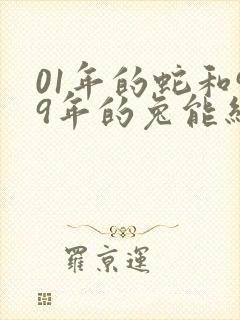 01年的蛇和9
9年的兔能结
羅京運